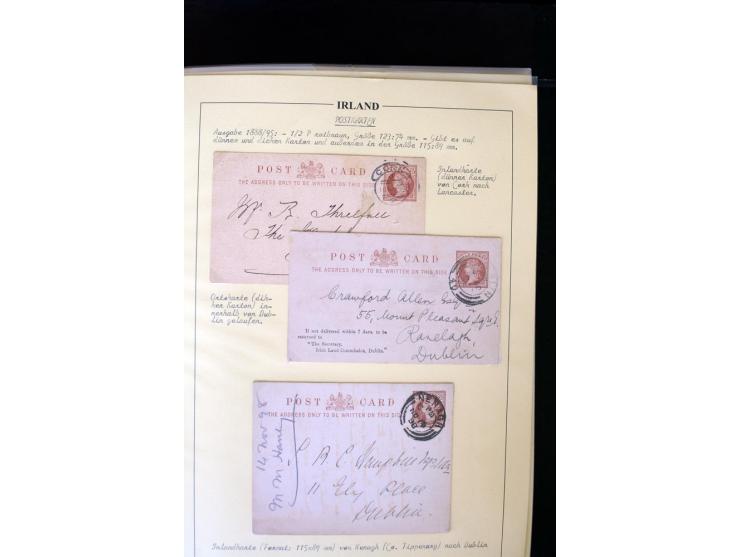 IRLAND
POSTKARTEN
Ausgabe 1888/95: - 1/2 P rotbraun, Größe 123:74 mm. - Gibt es auf
dünnen und dicken Karton und außerdem in der Größe 115:89 mm.
POST CARD
THE ADDRESS ONLY TO BE WRITTEN ON THIS SIDE
CORK
Mr R. Threlfall
The
Inlandkarte
(dünner Karton)
von Cork nach
Lancaster.
POST CARD
THE ADDRESS ONLY TO BE WRITTEN ON THIS SIDE
Crawford Allen Esq
55, Mount Pleasant Sqre
Ranelagh
Dublin
If not delivered within 7 days, to be
returned to
"The Secretary,
Irish Land Commission, Dublin."
Ortskarte (dik-
ker Karton) in-
nerhalb von Dub-
lin gelaufen.
POST CARD
THE ADDRESS ONLY TO BE WRITTEN ON THIS SIDE
NENAGH
14 Nov 98
11 Ely Place
Dublin.
Inlandkarte (Format: 115x89 mm) von Nenagh (Co. Tipperary) nach Dublin